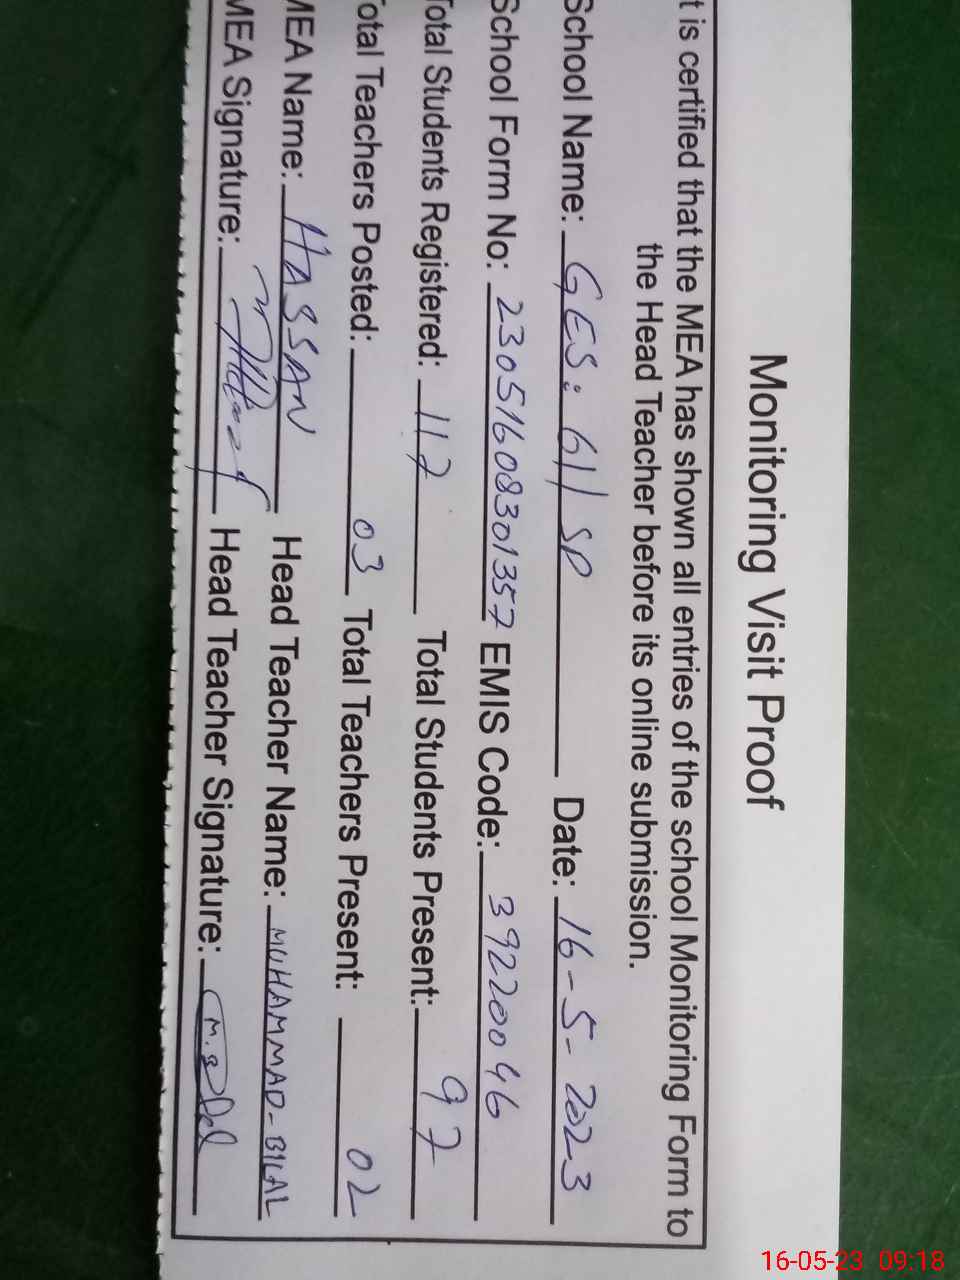 Monitoring Visit Proof
t is certified that the MEA has shown all entries of the school Monitoring Form to
the Head Teacher before its online submission.
School Name: GES: 61/ SP Date: 16-5-2023
School Form No: 23051608301357 EMIS Code: 39220046
Total Students Registered: 117 Total Students Present: 97
Total Teachers Posted: 03 Total Teachers Present: 02
MEA Name: HASSAN Head Teacher Name: MUHAMMAD-BILAL
MEA Signature: Head Teacher Signature: M. Bilal
16-05-23 09:18